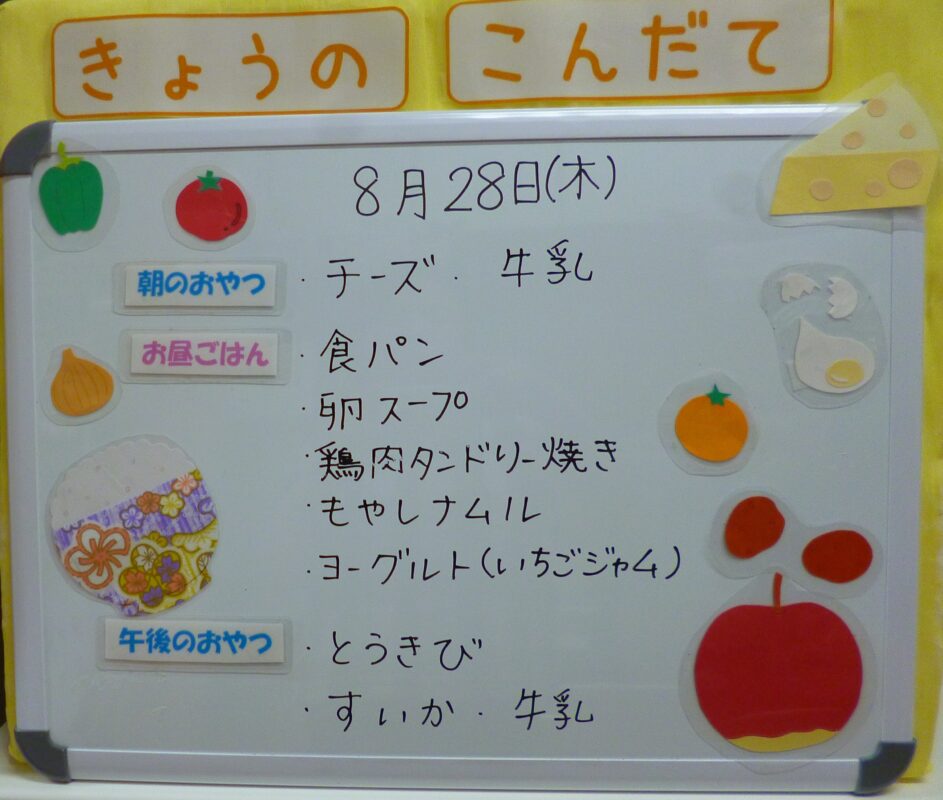 きょうの こんだて
8月28日(木)
朝のおやつ ・チーズ・牛乳
お昼ごはん ・食パン
・卵スープ
・鶏肉タンドリー焼き
・もやしナムル
・ヨーグルト(いちごジャム)
午後のおやつ ・とうきび
・すいか・牛乳